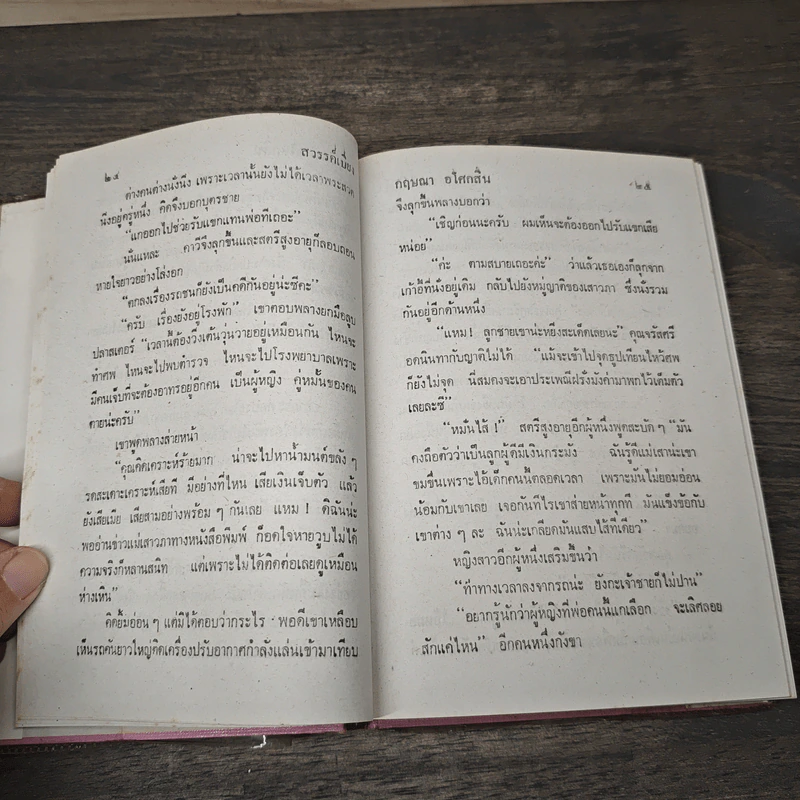 ๒๔
สวรรค์เบี่ยง
ต่างคนต่างนั่งนิ่ง เพราะเวลานั้นยังไม่ได้เวลาพระสวด
นิ่งอยู่ครู่หนึ่ง คิดจึงบอกบุตรชาย
"แกออกไปช่วยรับแขกแทนพ่อทีเถอะ"
นั่นแหละ คาวีจึงลุกขึ้นและสตรีสูงอายุก็ลอบถอน
หายใจยาวอย่างโล่งอก
"ตกลงเรื่องรถชนก็ยังเป็นคดีกันอยู่น่ะซีคะ"
"ครับ เรื่องยังอยู่โรงพัก" เขาตอบพลางยกมือลูบ
ปลาสเตอร์ "เวลานี้ต้องวิ่งเต้นวุ่นวายอยู่เหมือนกัน ไหนจะ
ทำศพ ไหนจะไปพบตำรวจ ไหนจะไปโรงพยาบาลเพราะ
มีคนเจ็บที่จะต้องอาทรอยู่อีกคน เป็นผู้หญิง คู่หมั้นของคน
ตายน่ะครับ"
เขาพูดพลางส่ายหน้า
"คุณคิดเคราะห์ร้ายมาก น่าจะไปหาน้ำมนต์ขลัง ๆ
รดสะเดาะเคราะห์เสียที มีอย่างที่ไหน เสียเงินเจ็บตัว แล้ว
ยังเสียเมีย เสียสามอย่างพร้อม ๆ กันเลย แหม ! ดิฉันน่ะ
พออ่านข่าวแม่เสาวภาทางหนังสือพิมพ์ ก็อดใจหายวูบไม่ได้
ความจริงก็หลานสนิท แต่เพราะไม่ได้ติดต่อเลยดูเหมือน
ห่างเหิน"
คิดยิ้มอ่อน ๆ แต่มิได้ตอบว่ากระไร พอดีเขาเหลือบ
เห็นรถคันยาวใหญ่ติดเครื่องปรับอากาศกำลังแล่นเข้ามาเทียบ
กฤษณา อโศกสิน
๒๕
จึงลุกขึ้นพลางบอกว่า
"เชิญก่อนนะครับ ผมเห็นจะต้องออกไปรับแขกเสีย
หน่อย"
"ค่ะ ตามสบายเถอะค่ะ" ว่าแล้วเธอเองก็ลุกจาก
เก้าอี้ที่นั่งอยู่เดิม กลับไปยังหมู่ญาติของเสาวภา ซึ่งนั่งรวม
กันอยู่อีกด้านหนึ่ง
"แหม ! ลูกชายเขาน่ะหยิ่งสะเด็ดเลยนะ" คุณจรัสศรี
อดนินทากับญาติไม่ได้ "แม้จะเข้าไปจุดธูปเทียนไหว้ศพ
ก็ยังไม่จุด นี่สมคงจะเอาประเพณีฝรั่งมังค่ามาพกไว้เต็มตัว
เลยละซี"
"หมั่นไส้ !" สตรีสูงอายุอีกผู้หนึ่งพูดสะบัด ๆ "มัน
คงถือตัวว่าเป็นลูกผู้ดีมีเงินกระมัง ฉันรู้ดีแม่เสาน่ะเขา
ขมขื่นเพราะไอ้เด็กคนนี้ตลอดเวลา เพราะมันไม่ยอมอ่อน
น้อมกับเขาเลย เจอกันทีไรเขาส่ายหน้าทุกที มันแข็งข้อกับ
เขาต่าง ๆ ละ ฉันน่ะเกลียดมันแสบไส้ทีเดียว"
หญิงสาวอีกผู้หนึ่งเสริมขึ้นว่า
"ท่าทางเวลาลงจากรถน่ะ ยังกะเจ้าชายก็ไม่ปาน"
"อยากรู้นักว่าผู้หญิงที่พ่อคนนี้แกเลือก จะเลิศลอย
สักแค่ไหน" อีกคนหนึ่งกังขา